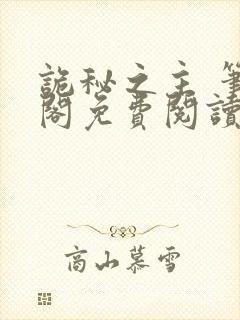 詭秘之主 筆
閣免費閱讀
高山慕雪